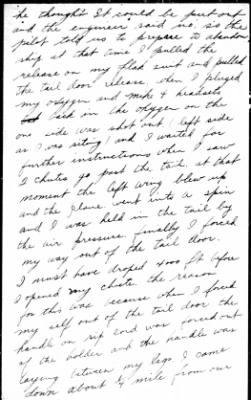 he thought It could be put out
and the engineer said no. So the
pilot told us to prepare to abandon
ship at that time I pulled the
release on my flak suit and pulled
the tail door release. when I pluged
my oxygen and mike & headsets
back in the oxygen on the
one side was shot out (left side
as I was siting) and I waited for
further instructions when I saw
2 chutes go past the tail at that
moment the left wing blew up
and the plane went into a spin
and I was held in the tail by
the air pressure finally I forced
my way out of the tail door.
I must have droped 4000 ft before
I opened my chute the reason
for this was because when I forced
my self out of the tail door the
handle on rip cord was forced out
of the holder and the handle was
laying between my legs I came
down about ½ mile from our